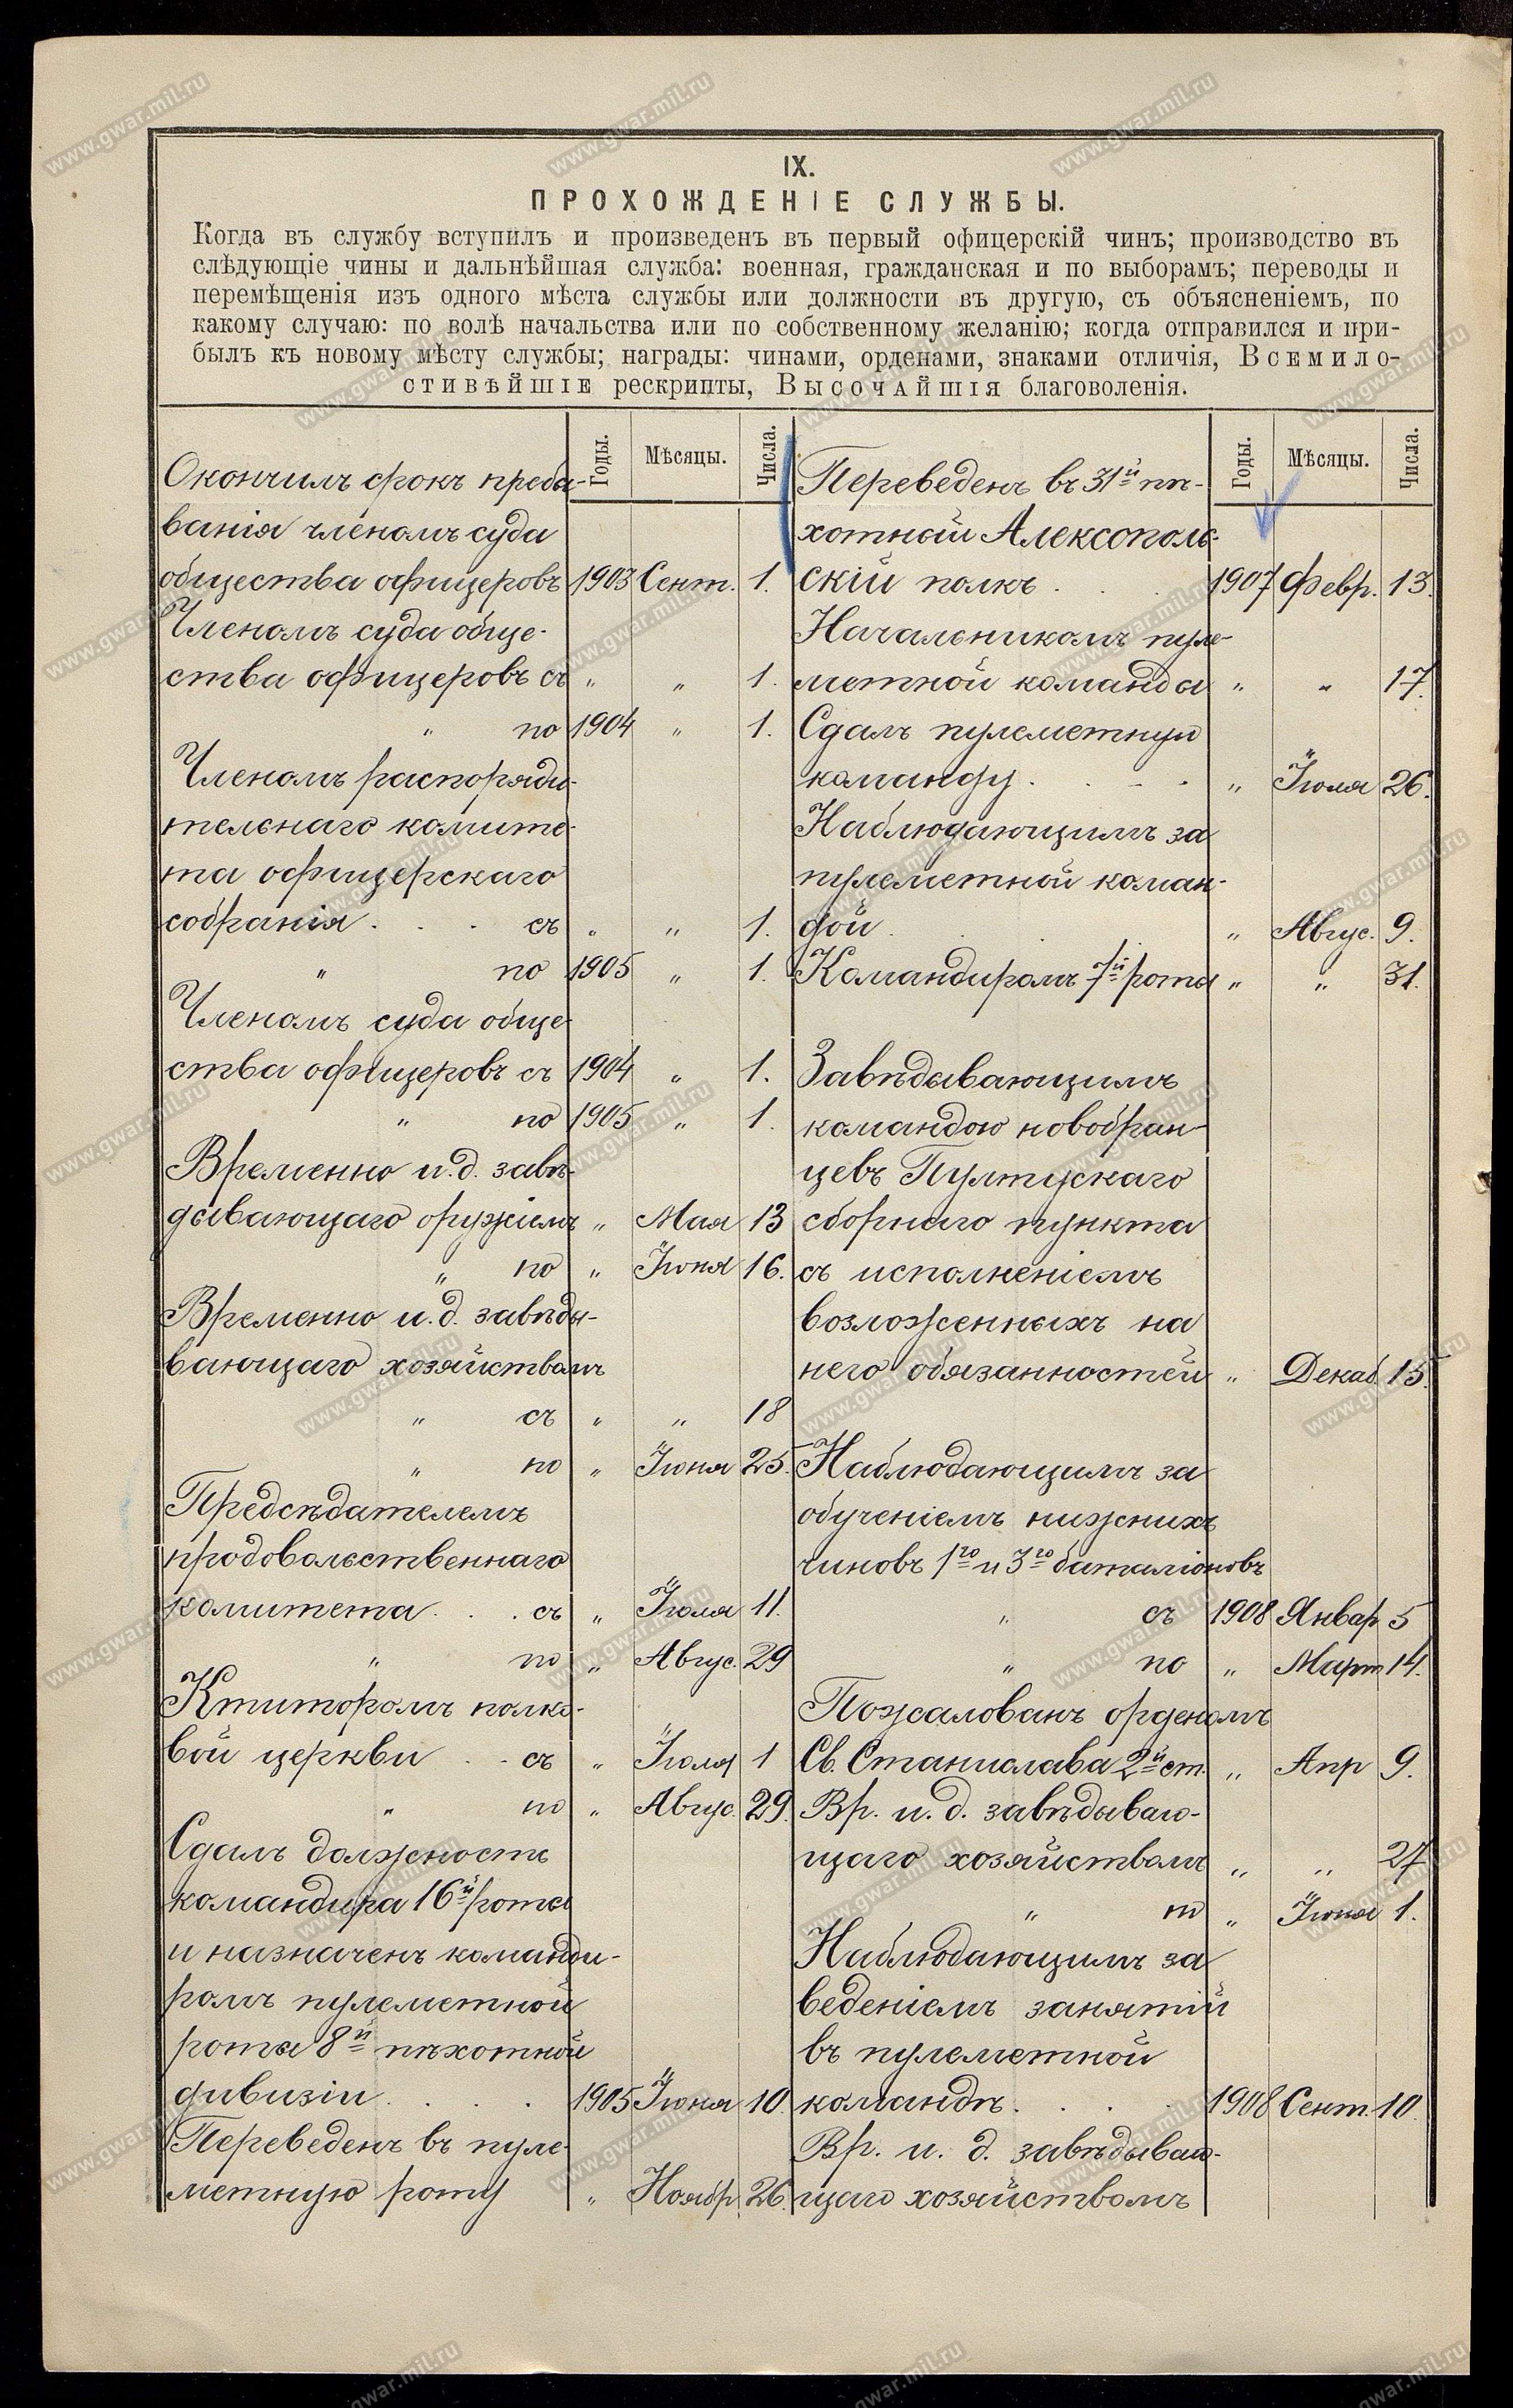 IX.
ПРОХОЖДЕНІЕ СЛУЖБЫ.
Когда въ службу вступилъ и произведенъ въ первый офицерскій чинъ; производство въ
слѣдующіе чины и дальнѣйшая служба: военная, гражданская и по выборамъ; переводы и
перемѣщенія изъ одного мѣста службы или должности въ другую, съ объясненіемъ, по
какому случаю: по волѣ начальства или по собственному желанію; когда отправился и при-
былъ къ новому мѣсту службы; награды: чинами, орденами, знаками отличія, Всемило-
стивѣйшіе рескрипты, Высочайшія благоволенія.
Годы. Мѣсяцы. Числа.
Окончилъ срокъ пребы-
ванія членомъ суда
общества офицеровъ 1903 Сент. 1.
Членомъ суда обще-
ства офицеровъ съ " " 1.
" по 1904 " 1.
Членомъ распоряди-
тельнаго комите-
та офицерскаго
собранія . . . съ " " 1.
" по 1905 " 1.
Членомъ суда обще-
ства офицеровъ съ 1904 " 1.
" по 1905 " 1.
Временно и.д. завѣ-
дывающаго оружіемъ " Мая 13
" по " Іюня 16.
Временно и.д. завѣды-
вающаго хозяйствомъ
" съ " " 18
" по " Іюня 25.
Предсѣдателемъ
продовольственнаго
комитета . . . съ " Іюля 11.
" по " Авгус. 29
Ктиторомъ полко-
вой церкви . . съ " Іюля 1
" по " Авгус. 29.
Сдалъ должность
командира 16й роты
и назначенъ команди-
ромъ пулеметной
роты 8й пѣхотной
дивизіи . . . . 1905 Іюня 10.
Переведенъ въ пуле-
метную роту " Ноябр. 26.
Годы. Мѣсяцы. Числа.
Переведенъ въ 31й пѣ-
хотный Алексополь-
скій полкъ . . . 1907 Февр. 13.
Начальникомъ пуле-
метной команды " " 17.
Сдалъ пулеметную
команду . . . . " Іюля 26.
Наблюдающимъ за
пулеметной коман-
дой . . . " Авгус. 9.
Командиромъ 7й роты " " 31.
Завѣдывающимъ
командою новобран-
цевъ Пултускаго
сборнаго пункта
съ исполненіемъ
возложенныхъ на
него обязанностей " Декаб. 15.
Наблюдающимъ за
обученіемъ нижнихъ
чиновъ 1го и 3го баталіоновъ
" съ 1908 Январ. 5
" по " Март. 14.
Пожалованъ орденомъ
Св. Станислава 2й ст. " Апр 9.
Вр. и. д. завѣдываю-
щаго хозяйствомъ " " 27
" по " Іюня 1.
Наблюдающимъ за
веденіемъ занятій
въ пулеметной
командѣ . . . . 1908 Сент. 10.
Вр. и. д. завѣдываю-
щаго хозяйствомъ
www.gwar.mil.ru